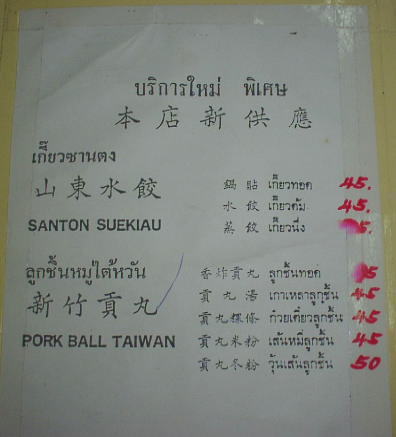 บริการใหม่ พิเศษ
本店新供應
เกี๊ยวซานตง
山東水餃
SANTON SUEKIAU
鍋貼 เกี๊ยวทอด 45.
水餃 เกี๊ยวต้ม 45.
蒸餃 เกี๊ยวนึ่ง 5.
ลูกชิ้นหมูไต้หวัน
新竹貢丸
PORK BALL TAIWAN
香炸貢丸 ลูกชิ้นทอด 5
貢丸湯 เกาเหลาลูกชิ้น 45
貢丸粿條 ก๋วยเตี๋ยวลูกชิ้น 45
貢丸米粉 เส้นหมี่ลูกชิ้น 45
貢丸冬粉 วุ้นเส้นลูกชิ้น 50